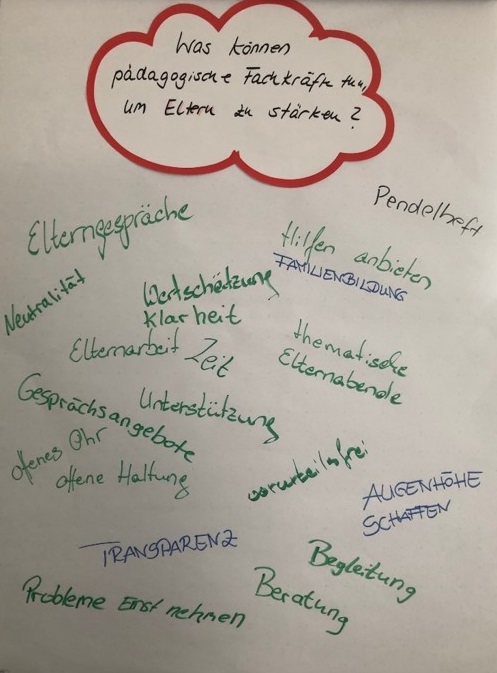 Was können
pädagogische Fachkräfte tun,
um Eltern zu stärken?
Pendelheft
Elterngespräche
Hilfen anbieten
FAMILIENBILDUNG
Neutralität
Wertschätzung
Klarheit
Elternarbeit
Zeit
thematische
Elternabende
Gesprächsangebote
Unterstützung
offenes Ohr
offene Haltung
vorurteilsfrei
AUGENHÖHE
SCHAFFEN
TRANSPARENZ
Begleitung
Beratung
Probleme Ernst nehmen